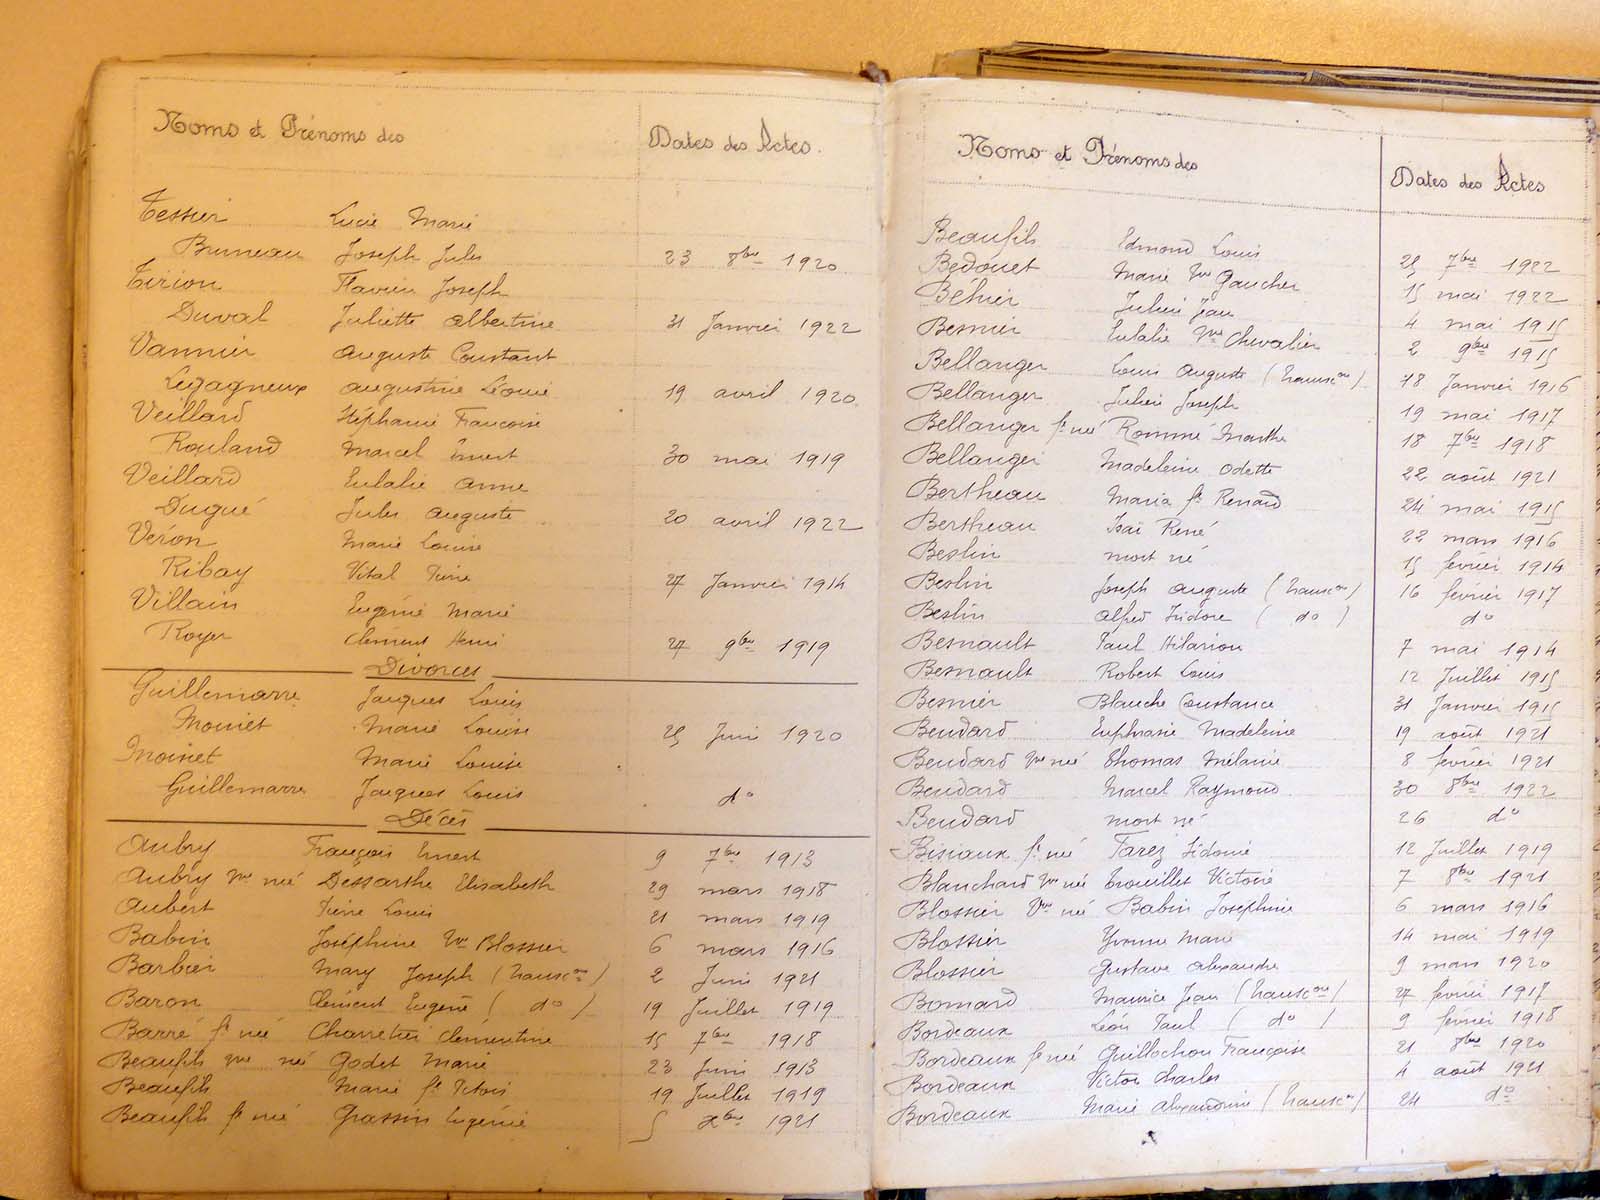 Noms et Prénoms des Dates des Actes.
Tessier Lucie Marie
Bruneau Joseph Jules 23 8bre 1920
Tirion Flavien Joseph
Duval Juliette Albertine 31 Janvier 1922
Vannier Auguste Constant
Legagneux Augustine Léonie 19 avril 1920
Veillard Stéphanie Françoise
Rouland Marcel Ernest 30 mai 1919
Veillard Eulalie Anne
Dugué Jules Auguste 20 avril 1922
Véron Marie Louise
Ribay Vital Pierre 27 Janvier 1914
Villain Eugénie Marie
Royer Clément Henri 27 9bre 1919
Divorces
Guillemarre Jacques Louis
Moinet Marie Louise 25 Juin 1920
Moinet Marie Louise
Guillemarre Jacques Louis do
Décès
Aubry François Ernest 9 7bre 1913
Aubry Vve née Dessarthe Elisabeth 29 mars 1918
Aubert Pierre Louis 21 mars 1919
Babin Joséphine Vve Blossier 6 mars 1916
Barbier Mary Joseph (transcon) 2 Juin 1921
Baron Clément Eugène ( do ) 19 Juillet 1919
Barré fe née Charretier Clémentine 15 7bre 1918
Beaufils vve née Godet Marie 23 Juin 1913
Beaufils Marie fe 19 Juillet 1919
Beaufils fe née Grassin Eugénie 5 Xbre 1921
Noms et Prénoms des Dates des Actes
Beaufils Edmond Louis 25 7bre 1922
Bedouet Marie Vve Gaucher 15 mai 1922
Béhier Julien Jean 4 mai 1915
Besnier Eulalie Vve Chevalier 2 9bre 1915
Bellanger Louis Auguste (transcon) 18 Janvier 1916
Bellanger Julien Joseph 19 mai 1917
Bellanger fe née Rommé Marthe 18 7bre 1918
Bellanger Madeleine Odette 22 août 1921
Bertheau Maria fe Renard 24 mai 1915
Bertheau Isaï René 22 mars 1916
Beslin mort né 15 février 1914
Beslin Joseph Auguste (transcon) 16 février 1917
Beslin Alfred Isidore ( do ) do
Besnault Paul Hilarion 7 mai 1914
Besnault Robert Louis 12 Juillet 1915
Besnier Blanche Constance 31 Janvier 1915
Beudard Euphrasie Madeleine 19 août 1921
Beudard Vve née Thomas Mélanie 8 février 1921
Beudard Marcel Raymond 30 8bre 1922
Beudard mort né 26 do
Bisiaux fe née Tarez Sidonie 12 Juillet 1919
Blanchard Vve née Trouillet Victoire 7 8bre 1921
Blossier Vve née Babin Joséphine 6 mars 1916
Blossier Yvonne Marie 14 mai 1919
Blossier Gustave Alexandre 9 mars 1920
Bomard Maurice Jean (transcon) 27 février 1917
Bordeaux Léon Paul ( do ) 9 février 1918
Bordeaux fe née Guillochon Françoise 21 8bre 1920
Bordeaux Victor Charles 4 août 1921
Bordeaux Marie Alexandrine (transcon) 24 do